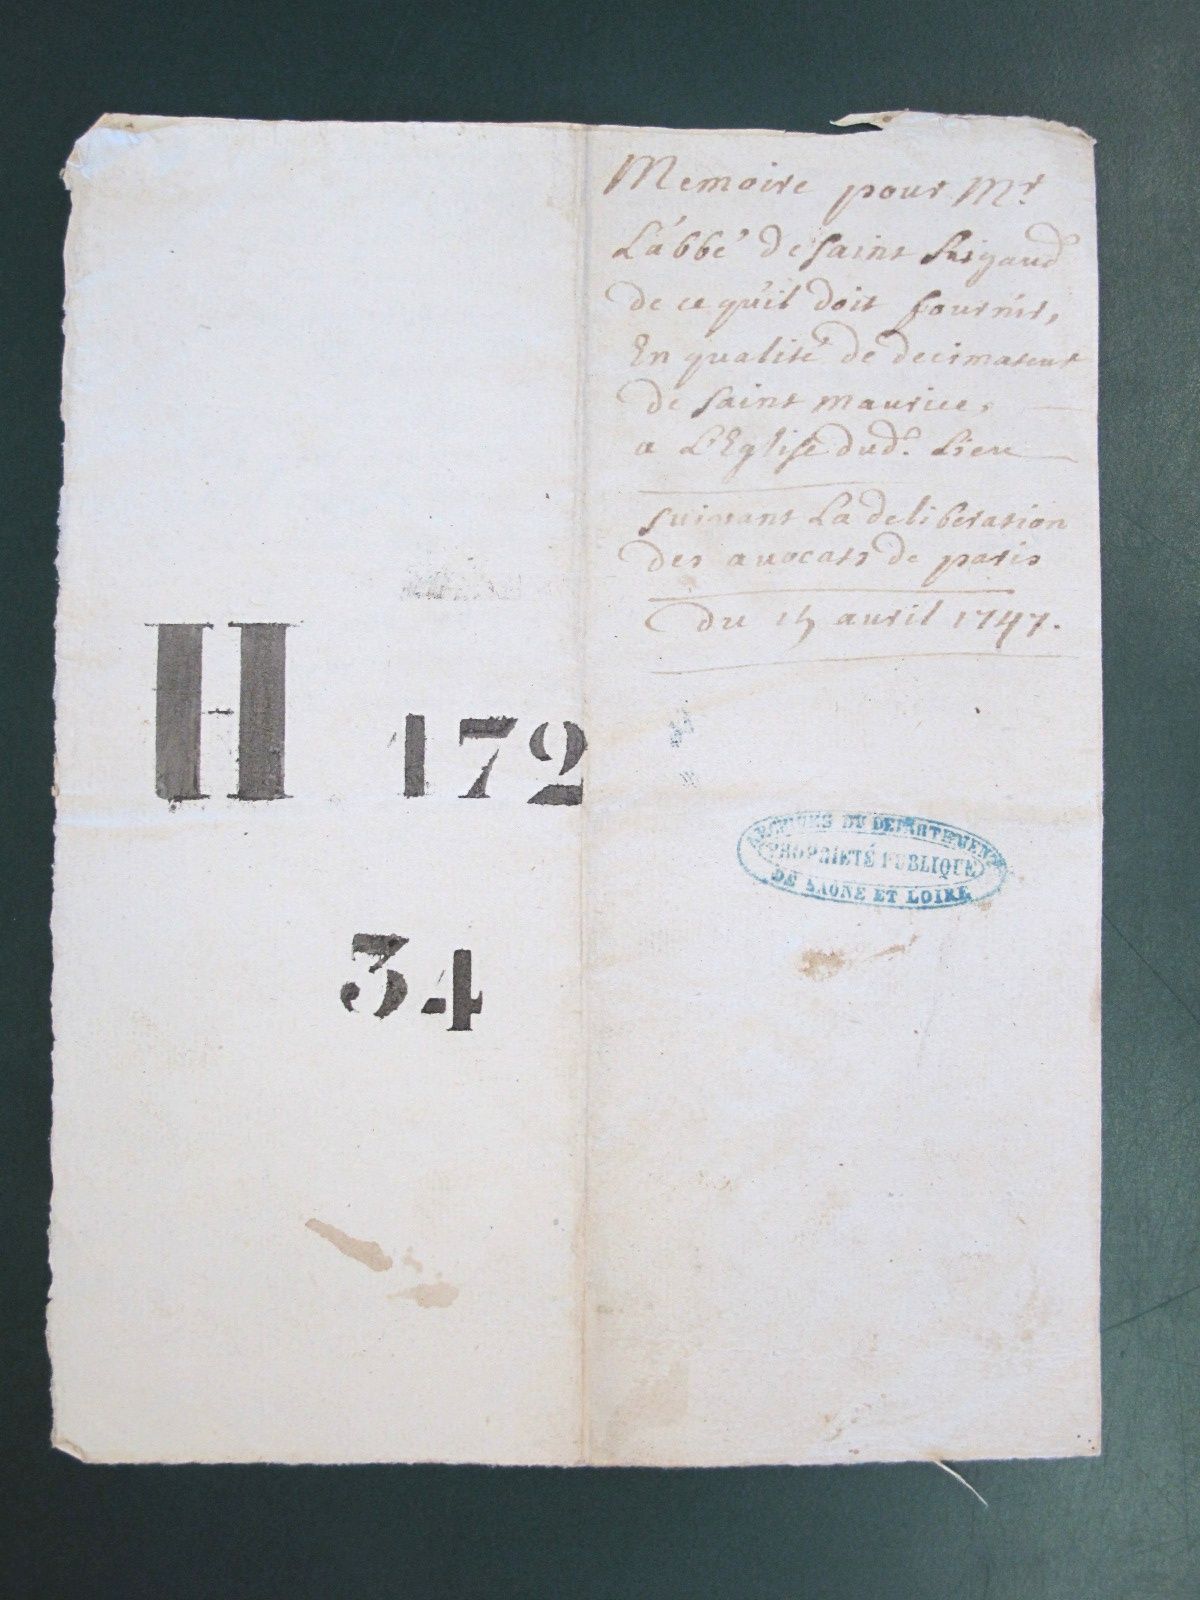 Memoire pour Mr
L'abbé de saint Rigaud
de ce qu'il doit fournir,
En qualité de decimateur
de saint maurice,
a L'Eglise dud. Lieu
suivant La deliberation
des avocats de paris
du 15 avril 1747.
H 172
34
ARCHIVES DU DEPARTEMENT
PROPRIETÉ PUBLIQUE
DE SAONE ET LOIRE